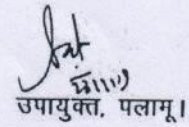 उपायुक्त, पलामू।